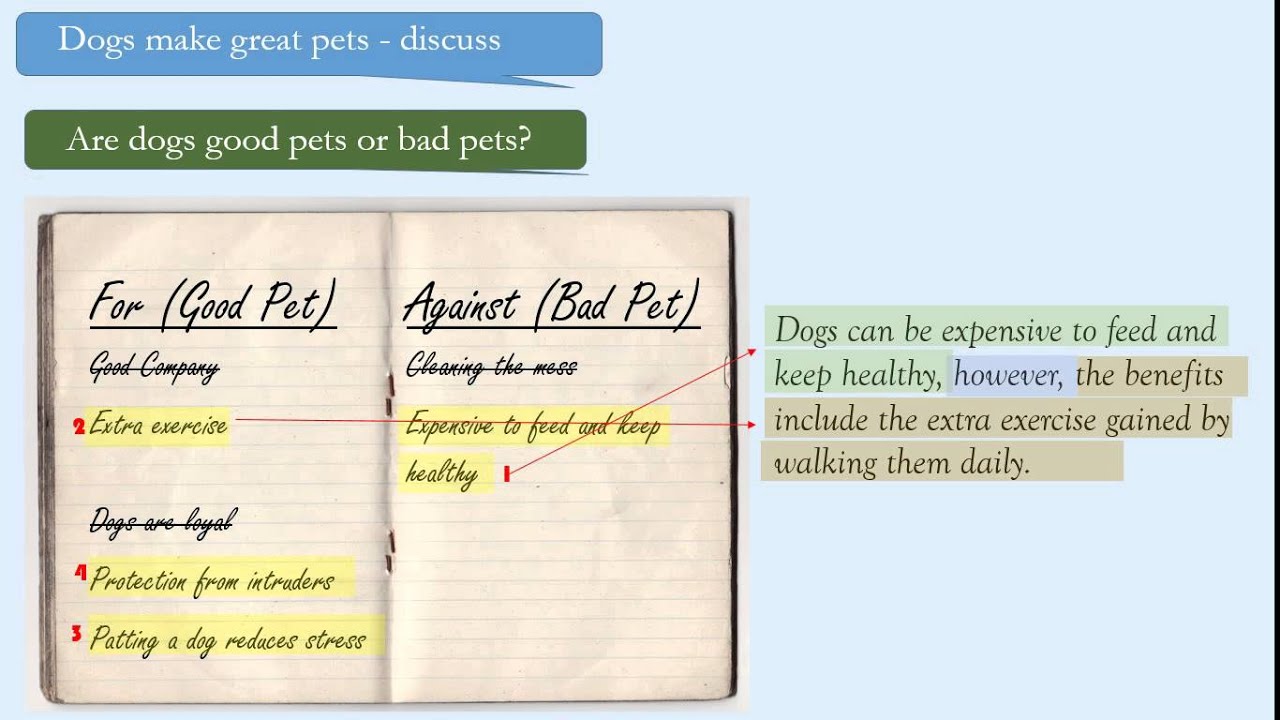 Dogs make great pets - discuss
Are dogs good pets or bad pets?
For (Good Pet)
Good Company
2 Extra exercise
Dogs are loyal
4 Protection from intruders
3 Patting a dog reduces stress
Against (Bad Pet)
Cleaning the mess
Expensive to feed and keep
healthy 1
Dogs can be expensive to feed and
keep healthy, however, the benefits
include the extra exercise gained by
walking them daily.